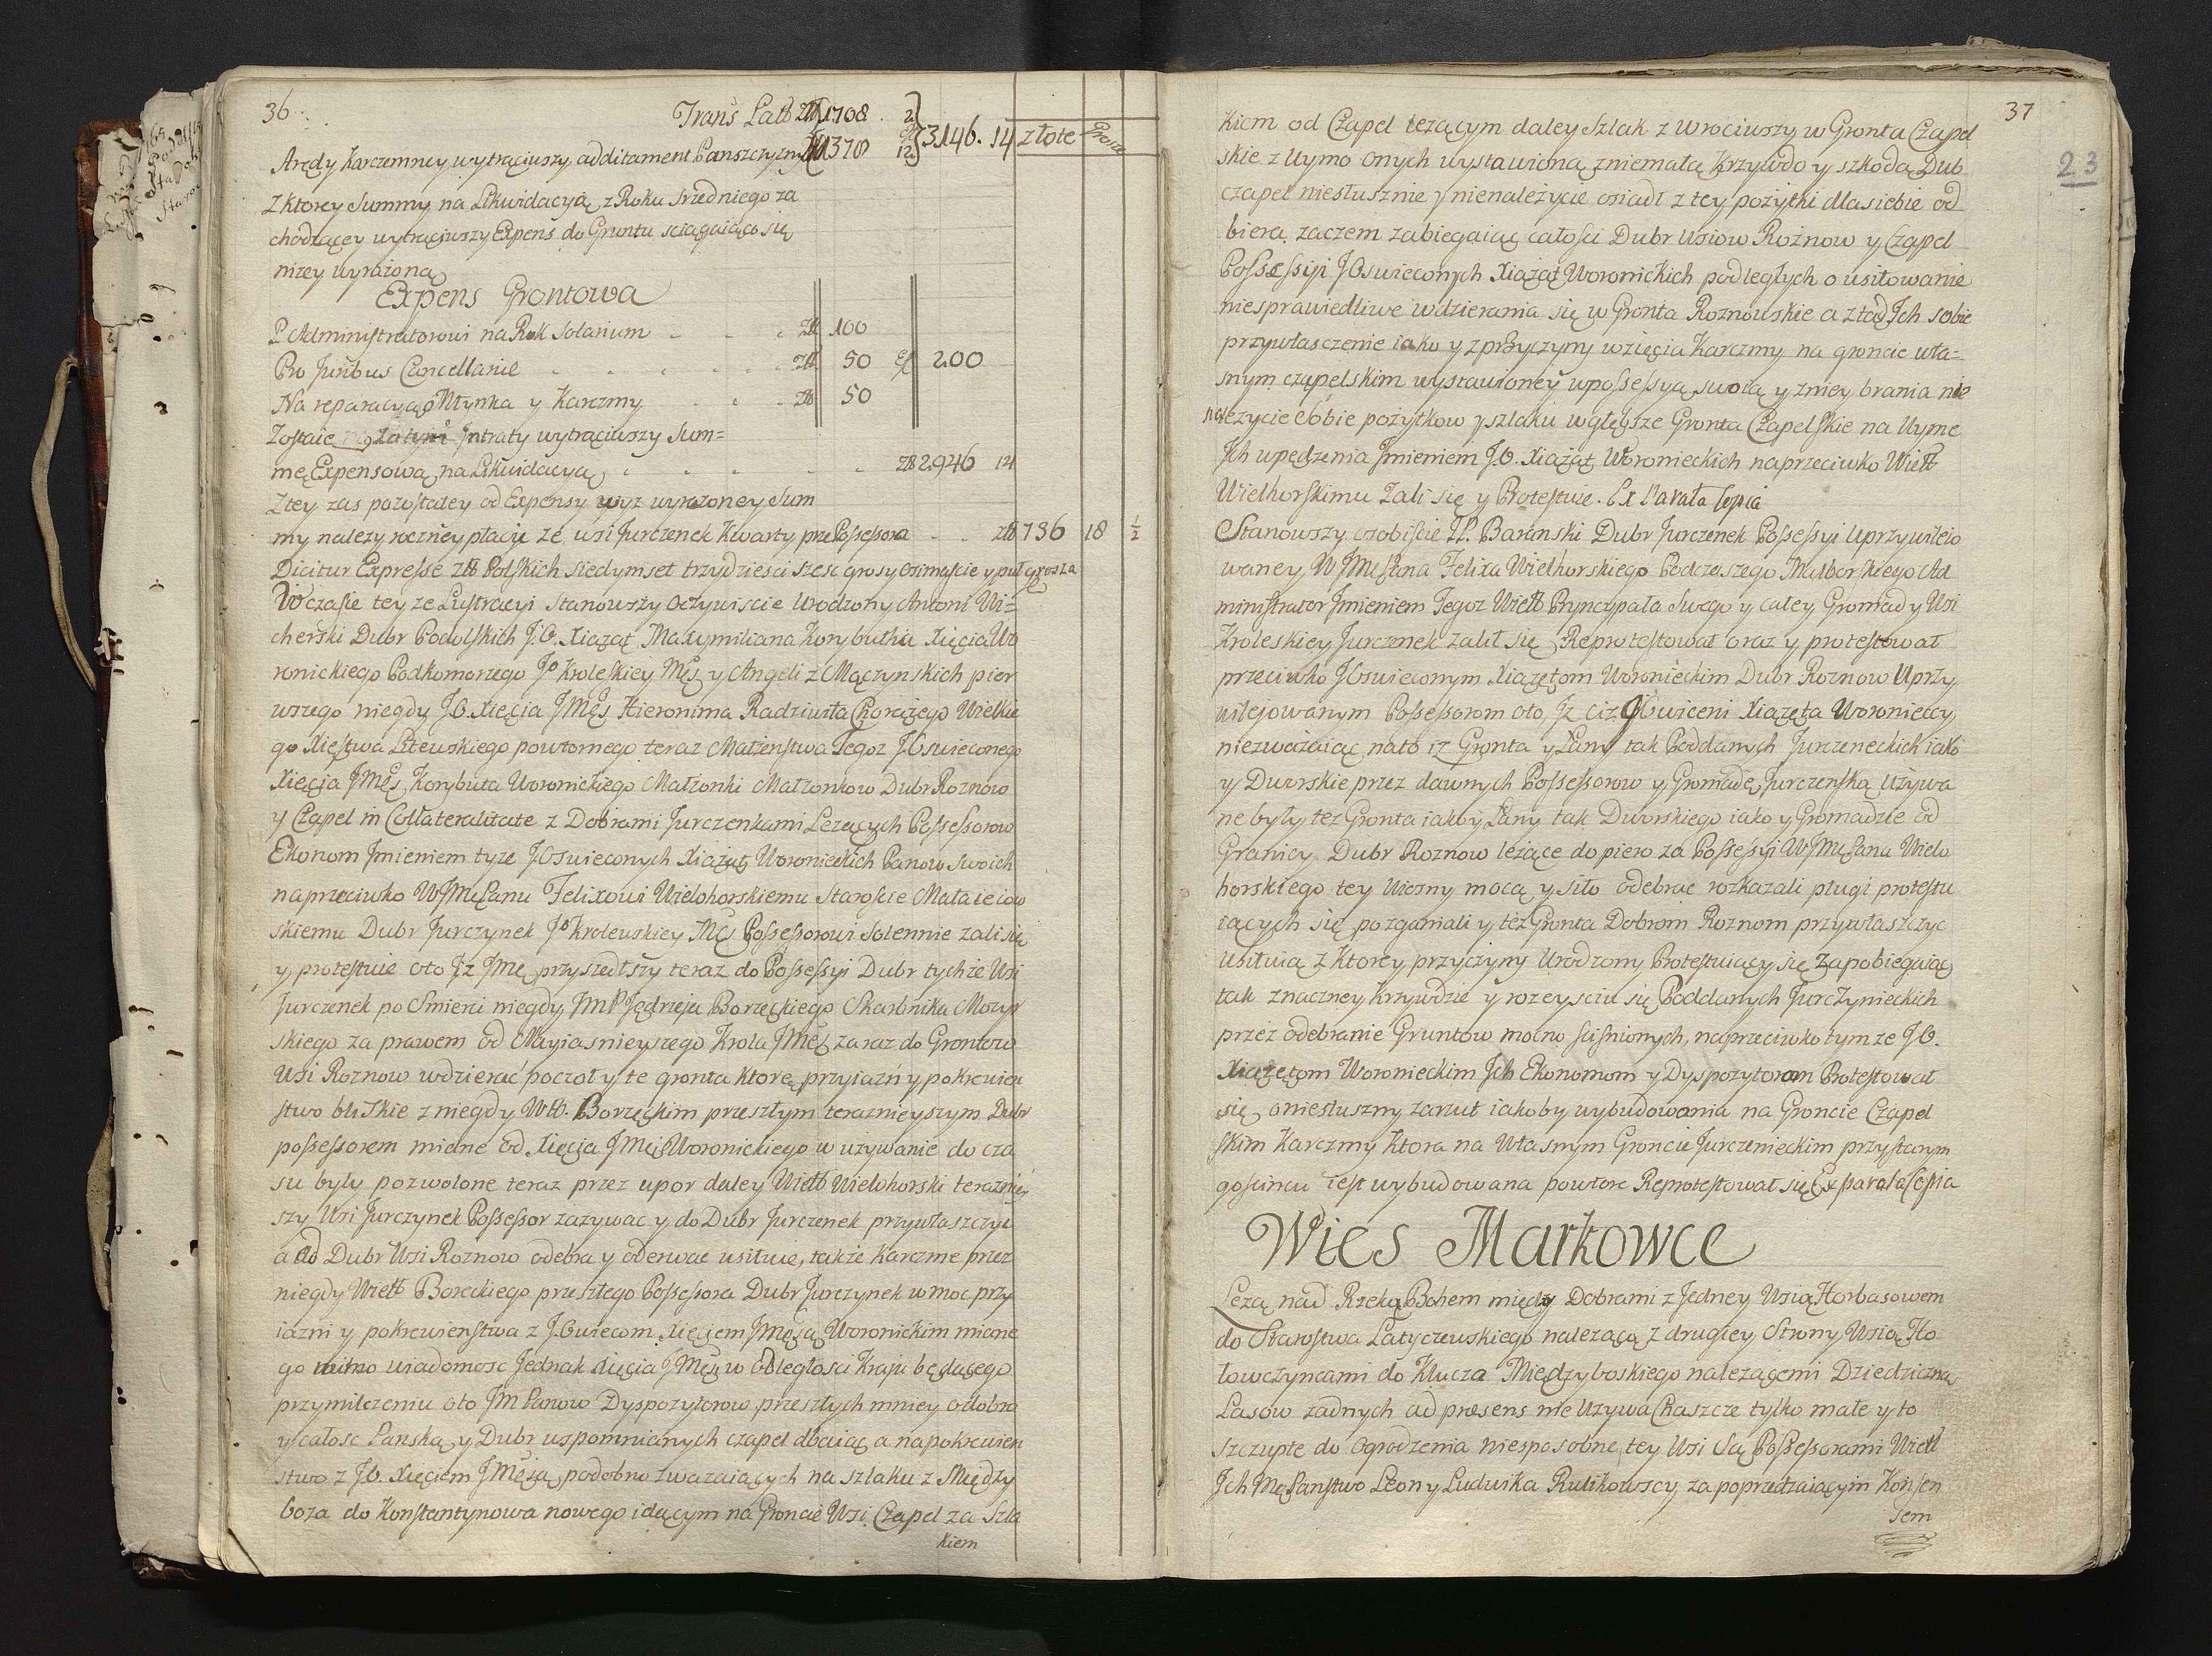 36
Trans Lat zł 1708 . 2
złote Grosze
Arędy Karczemney wytrąciwszy additament Panszczyzny zł 1378 12 3146. 14
z ktorey Summy na Likwidacyą z Roku srzedniego za
chodzącey wytrąciwszy Expens do Gruntu sciągaiąco się
nizey wyrażoną
Expens Grontowa
P Administratorowi na Rok Solarium zł 100
Pro Juribus Cancellariæ zł 50 ef 200
Na reparacyą Młynka y Karczmy zł 50
Zostaie Intraty wytrąciwszy Sum=
mę Expensową na Likwidacyą zł 2946 14
Z tey zas pozostałey od Expensy wyz wyrazoney Sum
my nalezy roczney płacy ze wsi Jurczenek Kwarty prze Possessora zł 736 18 1/2
Dicitur Expresse zł Polskich siedymset trzydziesci szesc grosy osimascie y puł grosza
W czasie tey ze Lustracyi stanowszy oczywiscie Urodzony Antoni Wi=
cherski Dubr Podolskich J.O. Xiąząt Maxymiliana Korybuthu Xięcia Wo
ronickiego Podkomorzego Jo Kroleskiey Mci y Angeli z Mączynskich pier
wszego niegdy J.O. Xięcia JMci Hieronima Radziwiła Chorążego Wielkie
go Xięstwa Litewskiego powtornego teraz Małżenstwa Tegoz J.Oswieconego
Xięcia JMci Korybuta Woronickiego Małzonki Małzonkow Dubr Roznow
y Czapel in Collateralitate z Dobrami Jurczenkami Lezących Possessorow
Ekonom Jmieniem tyze J.Oswieconych Xiąząt Woronieckich Panow swoich
naprzeciwko WJMci Panu Felixowi Wielohorskiemu Staroscie Małaieiow
skiemu Dubr Jurczynek Jo Krolewskiey Mci Possessorowi solennie zali się
y protestuie oto Jz Jmć przyszedłszy teraz do Possessyi Dubr tychże Wsi
Jurczenek po Smierci niegdy JmP Jędrzeja Borzęckiego Skarbnika Mozyr
skiego za prawem od Nayiasnieyszego Krola JMci zaraz do Grontow
Wsi Roznow wdzierać poczoł y te gronta ktore przyiazń y pokrewien
stwo bliskie z niegdy Wo. Borzęckim przeszłym teraznieyszym Dubr
possessorem miane od Xięcja JMci Woronickiego w używanie do cza
su były pozwolone teraz przez upor daley Wielo Wielohorski teraźniey
szy Wsi Jurczynek Possessor zazywac y do Dubr Jurczenek przywłaszczyc
a od Dubr Wsi Roznow odebra y oderwac usiłuie, także Karczme przez
niegdy Wielo Boreckiego przeszłego Possessora Dubr Jurczynek w moc przy
iazni y pokrewienstwa z J.Owiecom Xięciem JMcią Woronickim miane
go mimo wiadomosc Jednak Xięcia JMci w odległosci Kraju będącego
przymilczeniu oto Jm Panow Dyspozytorow przeszłych mniey o dobro
y całosc Panską y Dubr wspomnianych czapel dbaiąc a na pokrewien
stwo z J.O. Xięciem JMcią podobno zwazaiących na szlaku z Między
boza do Konstantynowa nowego idącym na Groncie Wsi Czapel za Szla
kiem
37
23
kiem od Czapel lezącym daley Szlak z wrociwszy w Gronta Czapel
skie z Uymo onych wystawioną zniemałą Krzywdo y szkodą Dub
czapel niesłusznie y nienależycie osiadł z tey pożytki dla siebie od
biera zaczem zabiegaiąc całosci Dubr Wsiow Rożnow y Czapel
Possessyi J.Oswieconych Xiąząt Woronickich podległych o usiłowanie
niesprawiedliwe wdzierania się w Gronta Roznowskie a ztąd Jch sobie
przywłasczenie iako y z przyczyny wzięcia Karczmy na groncie wła=
snym czapelskim wystawioney w possessyą swoią y zniey brania nie
należycie Sobie pożytkow y szlaku w głębsze Gronta Czapelskie na Uyme
Jch upędzenia Jmieniem J.O. Xiąząt Woronieckich naprzeciwko Wielo
Wielhorskimu Zali się y Protestuie. Ex Parata Copia
Stanowszy osobiscie U. Baranski Dubr Jurczenek Possessyi Uprzywileio
waney WJMci Pana Felixa Wielhorskiego Podczaszego Malborskiego Ad
ministrator Jmieniem Tegoz Wielo Pryncypała Swego y całey Gromady Wsi
Kroleskiey Jurczenek zalił się Reprotestował oraz y protestował
przeciwko J.Oswieconym Xiązętom Woronieckim Dubr Roznow Uprzy
wilejowanym Possessorom oto, Jz ciz J.Owiceni Xiązęta Woronieccy
niezważaiąc nato iz Gronta y Łany tak Poddanych Jurczeneckich iako
y Dworskie przez dawnych Possessorow y Gromadę Jurczenską Używa
ne były tez Gronta iakoy Łany tak Dworskiego iako y Gromadzie od
Granicy Dubr Roznow leżące dopiero za Possessyi WJMci Pana Wielo
horskiego tey Wiozny mocą y siło odebrac rozkazali plugi protestu
iących się pozganiali y też Gronta Dobrom Roznom przywłaszczyc
usiłuią z Ktorey przyczyny Urodzony Protestuiący się zapobiegaiąc
tak znaczney krzywdzie y rozeysciu się Poddanych Jurczynieckich
przez odebranie Gruntow mocno sciśnionych, naprzeciwko tymze J.O.
Xiązętom Woronieckim Jch Ekonomom y Dyspozytorom Protestował
się, o niesłuszny zarzut iakoby wybudowania na Groncie Czapel
skim Karczmy Ktora na Własnym Groncie Jurczenieckim przy starym
goscincu iest wybudowana powtore Reprotestował się Ex parata Copia
Wies Markowce
Lezą nad Rzeką Bohem między Dobrami z Jedney Wsią Horbasowem
do Starostwa Latyczewskiego nalezącą z drugiey Strony Wsią Ho
łowczyncami do Klucza Międzyboskiego nalezącemi Dziedziczną
Lasow żadnych ad præsens nie Uzywa Chaszcze tylko małe y to
szczupłe do Ogrodzenia niesposobne, tey Wsi Są Possessorami Wiell
Jch Mc Panstwo Leon y Ludwika Rulikowscy za poprzedzaiącym Konsen
sem